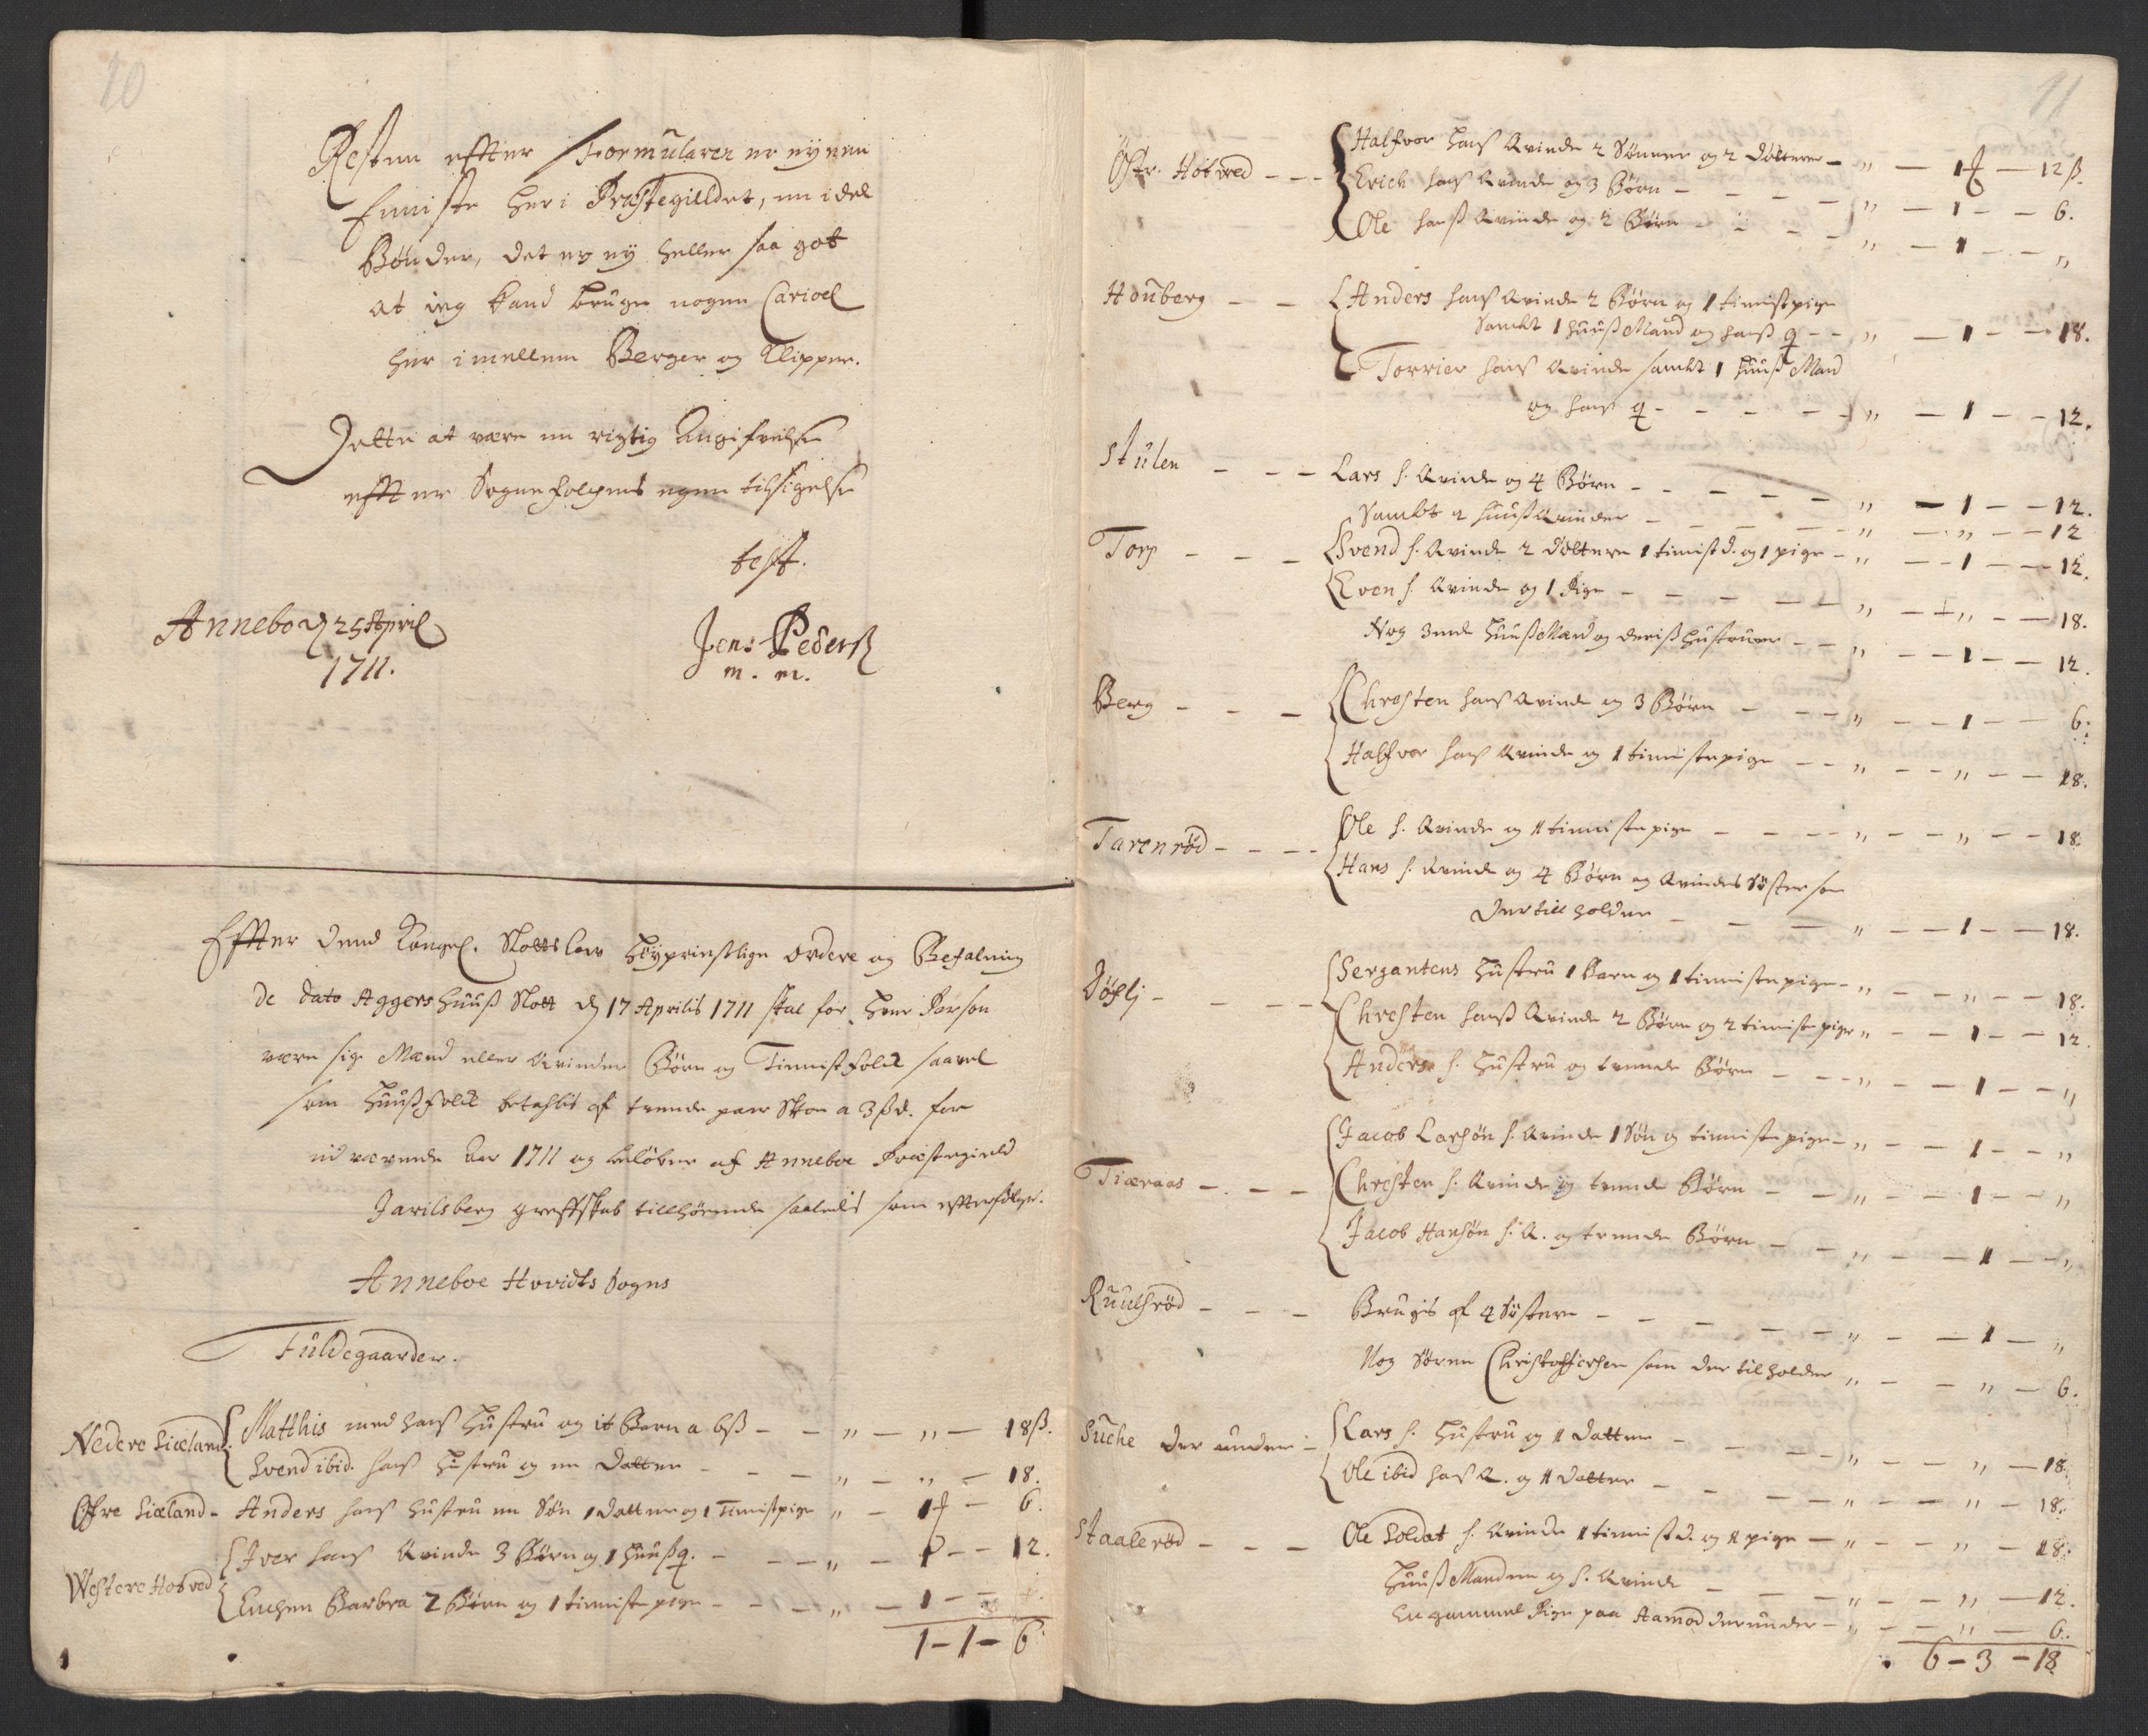 10
Resten effter Formularen er ey nen
her i Præstegilldet, en i del
Bønder, det er ey heller saa got
at ieg kand bruge nogen Cariol
her imellem Berger og Klipper.
Dette at være en rigtig Angifvelse
effter Sognefolchens egen tilsigelse
test.
Annebo d 25 April
1711.
Jens Pederß
m. m.
Effter dend Kongel. Slotts Low Høyprißlige ordere og Befalning
de dato Aggershuuß Slott d 17 Aprilis 1711 skal for hver Person
være sig Mænd eller Kvinder Børn og Tienistfolck saavel
som Huußfolck betahlis af tvende par Skoe a 3 ßd. for
nerværende Aar 1711 og beløber af Anneboe Præstegield
Jarilsberg Greffskab tillhørende saaledis som effterfølger.
Anneboe Hovidts Sogns
Fuldegaarder.
Nedere Siæland { Matthis med hans Hustru og it Barn a 6ß - - " - " - 18 ß.
Svend ibid. hans Hustru og en Datter - - - " - " - 18.
Øfre Siæland - Anders hans Hustru en Søn 1 Datter og 1 Tienistpige " - 1 - 6.
Westere Hotved { Iver hans Kvinde 3 Børn og 1 Huußq. - - - " - 1 - - 12.
Enchen Barbra 2 Børn og 1 tieniste pige - - - " - 1 -
1 - 1 - 6
11
Østr. Hotved - - - { Halfvor hans Kvinde 2 Sønner og 2 Døttere - " - 1 - 12 ß.
Erich hans Kvinde og 3 Børn - - - - " - 1 - - 6.
Ole hanß Kvinde og 2 Børn - - - - " - 1 - - "
Houberg - - { Anders hans Kvinde 2 Børn og 1 tienistpige
Sambt 1 Huuß Mand og hanß q - - " - 1 - - 18.
Torrier hans Kvinde sambt 1 Huuß Mand
og hans q - - - - - " - 1 - - 12.
Stulen - - - Lars h. Kvinde og 4 Børn - - - - - " - 1 - - 12.
Sambt 2 Huußkvinder - - - - - " - " - - 12
Torp - - - { Svend h. Kvinde 2 Døttere 1 tienist d. og 1 pige - " - - 1 - - 12.
Even h. Kvinde og 1 Pige - - - - - " - " - - 18.
Nog 3nde Huußmænd og deriß Hustruer - - " - - 1 - - 12.
Berg - - - { Chresten hans Kvinde og 3 Børn - - - " - - 1 - - 6.
Halfvor hans Kvinde og 1 tienistepige - - " - - " - - 18.
Tarenrød - - - - { Ole h. Kvinde og 1 tieniste pige - - - - " - - " - - 18
Hans h. Kvinde og 4 Børn og Kvindes Søster som
der till holder - - - " - - 1 - - 18.
- - - - { Sergantens Hustru 1 Barn og 1 tienistepige - " - - " - - 18.
Chresten hanß Kvinde 2 Børn og 2 tieniste piger " - - 1 - - 12.
Anders h. Hustru og tvende Børn - - - " - - 1 - - "
Tiæraas - - - { Jacob Larsøn h. Kvinde 1 Søn og tieniste pige - " - - 1 - - "
Chresten h. Kvinde og tvende Børn - - " - - 1 - - "
Jacob Hansøn h. K. og tvende Børn - - " - - 1 - - "
Ruulsrød - - - Brugis af 4 Søstere - - - - - " - - 1 - "
Nog Søren Christophersen som der til holder " - - " - 6.
Suche der under - { Lars h. Hustru og 1 Datter - - - - " - - " - 18.
Ole ibid hans K. og 1 Datter - - - - " - - " - 18.
Staalerød - - - Ole Soldat h. Kvinde 1 tienist d. og 1 pige - " - - " - 18.
Huuß Manden og h. Kvinde - - - " - - " - 12.
En gammel Pige paa Aamod derunder - " - - " - 6.
6 - 3 - 18